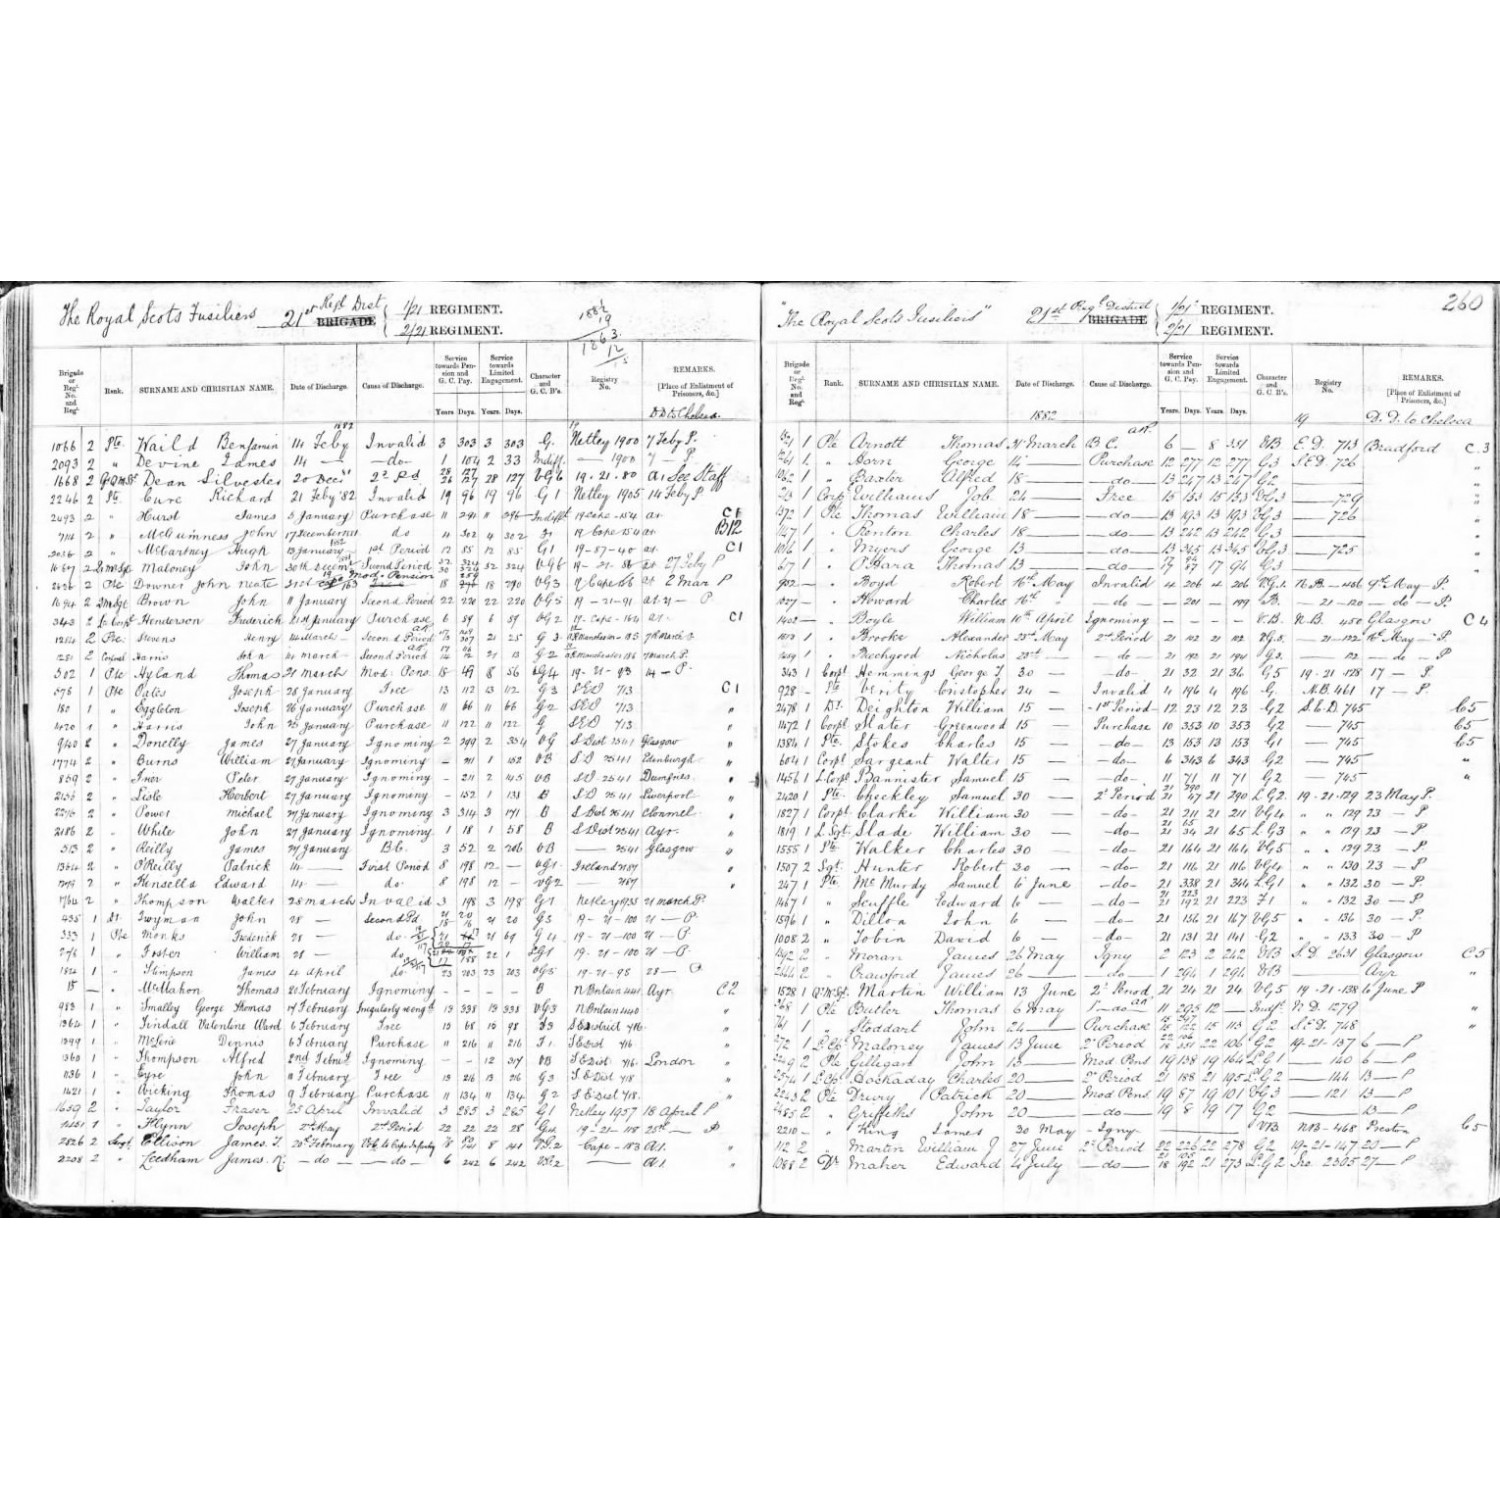 The Royal Scots Fusiliers 21st Regl Dist BRIGADE 1/21 REGIMENT.
2/21 REGIMENT.
Brigade or Regl No. and Regt Rank. SURNAME AND CHRISTIAN NAME. Date of Discharge. Cause of Discharge. Service towards Pension and G. C. Pay. Service towards Limited Engagement. Character and G. C. B's. Registry No. REMARKS. [Place of Enlistment of Prisoners, &c.]
Years Days. Years. Days. D.D to Chelsea.
1882
1066 2 Pte. Waild Benjamin 14 Feby Invalid 3 303 3 303 G. Netley 1900 7 Feby P.
2093 2 " Devine James 14 — —do— 1 104 2 33 Indiff. — 1900 7 — P
1668 2 QrMSr Dean Silvester 20 Decr 2d Pd 28 127 VG6 19.21.80 See Staff
2246 2 Pte. Cure Richard 21 Feby '82 Invalid 19 96 19 96 G1 Netley 1905 14 Feby P
2493 2 " Hurst James 5 January Purchase 11 291 11 296 Indifft C1
2 " McGuinness John 17 December do 4 302 4 302 19 Cape 154 B12
2 " McCartney Hugh 13 January 1st Period 12 85 12 85 G1 19-87-40 C1
2 Maloney John 30th Decem Second Period 52 324 VG6 27 Feby P
2 Pte Downer John Neate 31st Mod. Pension 18 18 290 VG3 2 Mar P
2 Brown John 11 January Second Period 22 220 22 220 VG5 19-21-91 P
343 2 Lc Corpl Henderson Frederick 21st January Purchase 6 59 6 59 VG2 C1
2 Pte. Stevens Henry March Second Period 21 25 G3 7 March
1281 2 Corporal Harris John March Second Period 21 13 G2 7 March P.
302 1 Pte Hyland Thomas 21 March Mod. Pens. 18 49 8 56 VG4 19-21-93 14 — P.
578 1 Pte Oates Joseph 28 January Free 13 112 13 112 G3 SED 713 C1
180 1 " Eggleton Joseph 26 January Purchase 11 66 11 66 G2 SED 713 "
1420 1 " Harris John 25 January Purchase 11 122 11 122 G SED 713 "
940 2 " Donelly James 27 January Ignominy 2 299 2 334 VG S Dist 2541 Glasgow "
1774 2 " Burns William 27 January Ignominy — 1 152 VB S.D 2541 Edinburgh "
859 2 " Ivor Peter 27 January Ignominy — 211 2 145 VB S.D 2541 Dumfries "
2156 2 " Lisle Herbert 27 January Ignominy — 152 1 131 B S.D 2541 Liverpool "
2276 2 " Power Michael 27 January Ignominy 3 314 3 171 B S Dist 2541 Clonmel "
2186 2 " White John 27 January Ignominy 1 18 1 58 B S Dist 2541 Ayr. "
513 2 " Reilly James 27 January B.C. 3 52 2 206 VB — 2541 Glasgow "
1364 2 " O'Reilly Patrick 14 — First Period 8 198 12 — VG1 Ireland "
2 " Kinsella Edward 14 — do 8 198 12 — VG2 — "
1764 2 " Thompson Walter 28 March Invalid 3 198 3 198 G1 Netley 1935 21 March P.
435 1 Dr Twyman John 28 — Second Pd 21 20 G3 19-21-100 21 — P.
333 1 Pte Monks Frederick 28 — do 21 69 G4 19-21-100 21 — P
276 1 " Foster William 28 — do 22 1 LG1 19-21-100 21 — P
1824 1 " Stimpson James 4 April do 23 203 23 203 VG5 19-21-98 28 — P.
15 — " McMahon Thomas 20 February Ignominy — — — — B N Britain 441 Ayr. C2
983 1 " Smalley George Thomas 17 February Irregularly enlgt 13 338 13 338 VG3 N Britain 440 "
1364 1 " Tindall Valentine Ward 6 February Free 15 68 15 98 F3 S.E District 716. "
1399 1 " McLevie Dennis 6 February Purchase 11 216 11 216 F1 S.E Dist 716 "
1360 1 " Thompson Alfred 2nd Febry Ignominy — — 12 317 VB S.E Dist 716. London "
1136 1 " Eyre John 11 February Free 13 216 13 216 G3 S.E Dist 718 "
1421 1 " Wicking Thomas 9 February Purchase 11 134 11 134 G2 S.E Dist 718. "
1659 2 " Taylor Fraser 25 April Invalid 3 285 3 285 G1 Netley 1957 18 April P
1 " Flynn Joseph 2nd May 2d Period 22 22 22 28 G 19-21-118 25th — P.
2826 2 Sergt Ellison James T. 20th February 8 141 VG2 Cape 183 A1. "
2208 2 " Leedham James K. —do— —do— 6 242 6 242 VG2 — A1. "
"The Royal Scots Fusiliers" 21st Regl District BRIGADE 1/21 REGIMENT. 260
2/21 REGIMENT.
Brigade or Regl No. and Regt Rank. SURNAME AND CHRISTIAN NAME. Date of Discharge. Cause of Discharge. Service towards Pension and G. C. Pay. Service towards Limited Engagement. Character and G. C. B's. Registry No. REMARKS. [Place of Enlistment of Prisoners, &c.]
Years. Days. Years. Days.
1882 19 D.D. to Chelsea
1 Pte Arnott Thomas 31 March B.C. 6 — 8 VB E.D. 713 Bradford C.3
1261 1 " Horn George 14 — Purchase 12 277 12 277 G3 S.E.D 726 "
1062 1 " Baxter Alfred 18 — —do— 13 247 13 247 G2 "
213 1 Corp Williams Job. 24 — Free 15 153 15 153 VG3 — 729 "
1372 1 Pte Thomas William 18 — —do— 13 193 13 193 VG3 — 726 "
1147 1 " Renton Charles 18 — —do— 13 242 13 242 G3 "
1016 1 " Myers George 13 — —do— 13 365 13 365 VG3 — 725 "
617 1 " O'Hara Thomas 13 — —do— 17 17 94 G3 "
902 — " Boyd Robert 16th May Invalid 4 206 4 206 V.G.1. N.B. — 456 9th May — P.
1027 — " Howard Charles 16th " —do— — 201 — 199 B. — 21-120 — do — P.
1402 — " Boyle William 10th April Ignominy — — — — V.B. N.B. 450 Glasgow C4
1 " Brooke Alexander 23rd May 2nd Period 21 112 21 112 V.G.5. — 21-112 16th May — P.
1 " Peechgood Nicholas 23rd — —do— 21 192 21 191 G3. — 112 — do — P
343 1 Corpl Hemmings George T. 30 — —do— 21 32 21 36 G5 19-21-128 17 — P.
928 — Pte Verity Cristopher 24 — Invalid 4 196 4 196 G. N.B. 461 17 — P.
2478 1 Dr. Deighton William 15 — 1st Period 12 23 12 23 G2 S.E.D. 745 C5
1472 1 Corpl Slater Greenwood 15 — Purchase 10 353 10 353 G2 — 745 C5
1386 1 Pte. Stokes Charles 15 — —do— 13 153 13 153 G1 — 745 C5
604 1 Corpl Sargeant Walter 15 — —do— 6 343 6 343 G2 — 745 "
1456 1 L. Corpl Bannister Samuel 15 — —do— 11 71 11 71 G2 — 745 "
2420 1 Pte. Checkley Samuel 30 — 2d Period 21 47 21 290 LG2 19-21-129 23 May P.
1827 1 Corpl Clarke William 30 — —do— 21 211 21 211 VG4 " " 129 23 — P
1819 1 L Sgt Slade William 30 — —do— 21 34 21 65 LG3 " " 129 23 — P
1555 1 Pte Walker Charles 30 — —do— 21 164 21 164 VG5 " " 129 23 — P.
1507 2 Sgt. Hunter Robert 30 — —do— 21 116 21 116 VG4 " " 130 23 — P
247 1 Pte McMurdy Samuel 6 June —do— 21 338 21 344 LG1 " " 132 30 — P.
1467 1 " Scuffle Edward 6 — —do— 21 192 21 223 F1 " " 132 30 — P
1596 1 " Dillon John 6 — —do— 21 156 21 167 VG5 " " 136 30 — P.
1008 2 " Tobin David 6 — —do— 21 131 21 141 G2 " " 133 30 — P
1392 2 " Moran James 26 May Igny 2 123 2 242 VB S.D. 2631 Glasgow C5
2444 2 " Crawford James 26 — —do— 1 294 1 294 VB Ayr "
1528 1 QrMSgt. Martin William 13 June 2d Period 21 24 21 24 VG5 19-21-138 6 June P
1 Pte Butler Thomas 6 May 1 —do— 11 295 12 — Indft. N.D. 1279 "
761 1 " Stoddart John 24 — Purchase 15 122 15 113 G2 S.E.D. 748 "
272 1 L.Cpl Maloney James 13 June 2d Period 22 106 G2 19-21-137 6 — P
2249 2 Pte Gilligan John 13 — Mod Pens 19 138 19 164 LG1 — 140 6 — P
2574 1 L.Cpl Hockaday Charles 20 — 2d Period 21 188 21 195 LG2 — 144 13 — P
2243 2 Pte Drury Patrick 20 — Mod Pens 19 87 19 101 VG3 — 121 13 — P
2485 2 " Griffiths John 20 — —do— 19 8 19 17 G2 — 13 — P
2210 — " King James 30 May Igny — VB N.B-468 Preston C5
112 2 " Martin William J 27 June 2d Period 22 226 22 278 G2 19-21-147 20 — P
1088 2 Dr Maher Edward 4 July —do— 18 192 21 273 LG2 Ire 2305 27 — P